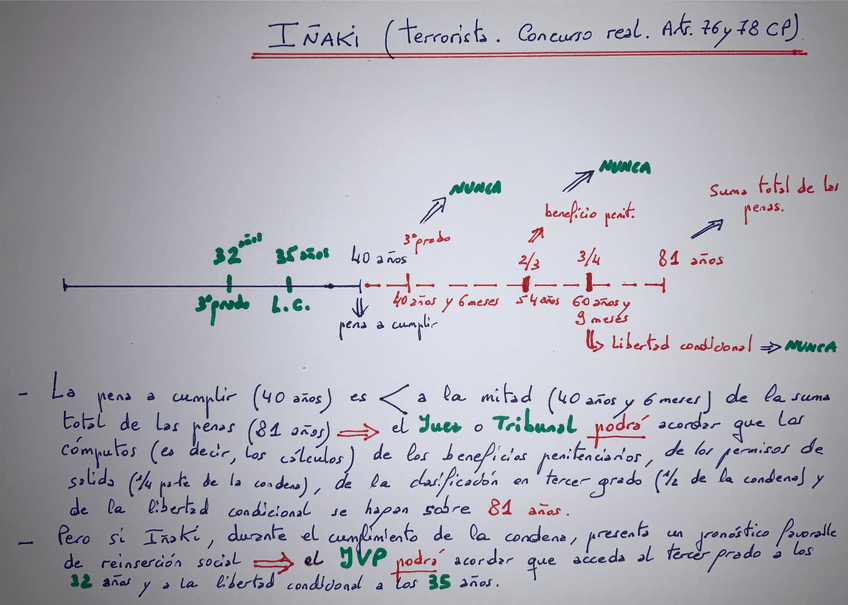 IÑAKI (terrorista. Concurso real. Arts. 76 y 78 CP)
NUNCA
NUNCA
Suma total de las
penas.
beneficio penit.
32 años
35 años
40 años
3º grado
2/3
3/4
81 años
3º grado
L.C.
40 años y 6 meses
54 años
60 años y
9 meses
pena a cumplir
Libertad condicional ⇒ NUNCA
- La pena a cumplir (40 años) es < a la mitad (40 años y 6 meses) de la suma
total de las penas (81 años) ⇒ el Juez o Tribunal podrá acordar que los
cómputos (es decir, los cálculos) de los beneficios penitenciarios, de los permisos de
salida (1/4 parte de la condena), de la clasificación en tercer grado (1/2 de la condena) y
de la libertad condicional se hagan sobre 81 años.
- Pero si Iñaki, durante el cumplimiento de la condena, presenta un pronóstico favorable
de reinserción social ⇒ el JVP podrá acordar que acceda al tercer grado a los
32 años y a la libertad condicional a los 35 años.